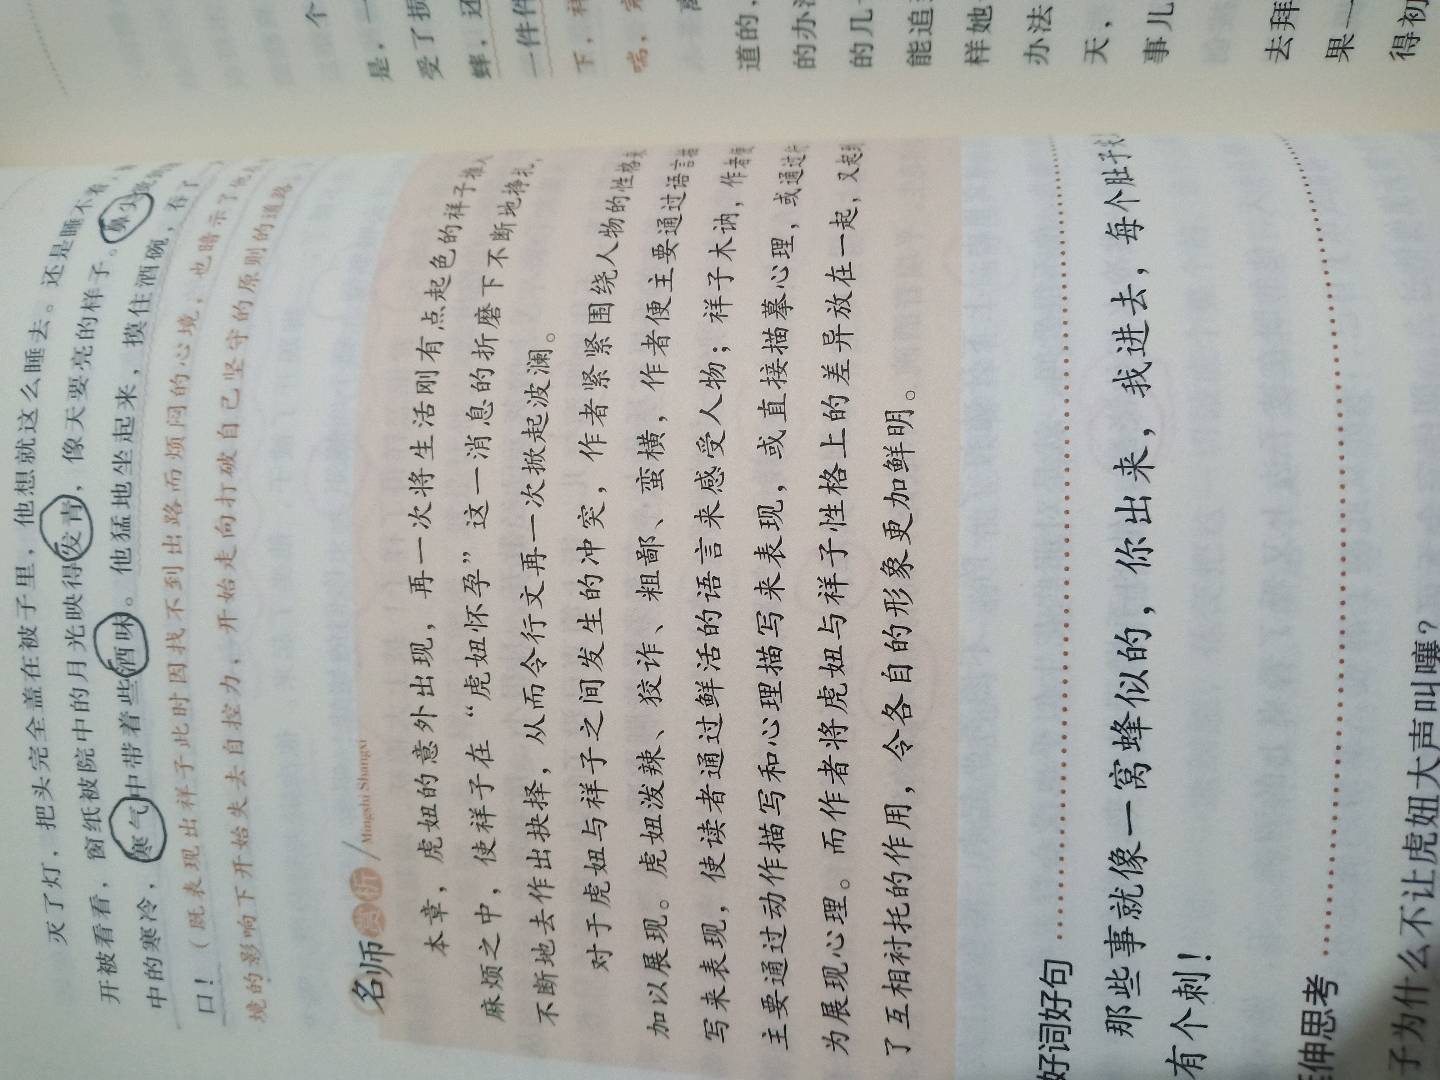 灭了灯，把头完全盖在被子里，他想就这么睡去。还是睡不着，
开被看看，窗纸被院中的月光映得发青，像天要亮的样子。鼻尖
中的寒冷，寒气中带着些酒味。他猛地坐起来，摸住酒碗，吞了
口！（既表现出祥子此时因找不到出路而烦闷的心境，也暗示了他
境的影响下开始失去自控力，开始走向打破自己坚守的原则的道路
名师赏析 Mingshi Shangxi
本章，虎妞的意外出现，再一次将生活刚有点起色的祥子推
麻烦之中，使祥子在“虎妞怀孕”这一消息的折磨下不断地挣扎，
不断地去作出抉择，从而令行文再一次掀起波澜。
对于虎妞与祥子之间发生的冲突，作者紧紧围绕人物的性格来
加以展现。虎妞泼辣、狡诈、粗鄙、蛮横，作者便主要通过语言描
写来表现，使读者通过鲜活的语言来感受人物；祥子木讷，作者便
主要通过动作描写和心理描写来表现，或直接描摹心理，或通过行
为展现心理。而作者将虎妞与祥子性格上的差异放在一起，又起到
了互相衬托的作用，令各自的形象更加鲜明。
好词好句
那些事就像一窝蜂似的，你出来，我进去，每个肚子
有个刺！
伸思考
子为什么不让虎妞大声叫嚷？
个
是，一
受了损
蟀，还
一件件
下，祥
喘，
离
道的，
的办法
的几
能追
样她
办法
天，
事儿
去拜
果一
得初